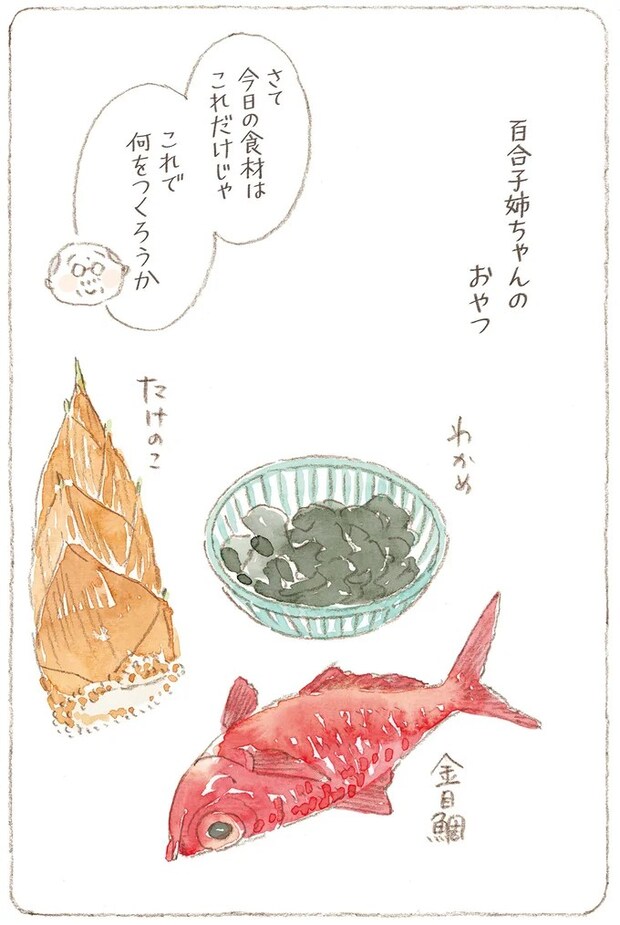 百合子姉ちゃんの
おやつ
さて
今日の食材は
これだけじゃ
これで
何をつくろうか
たけのこ
わかめ
金目鯛